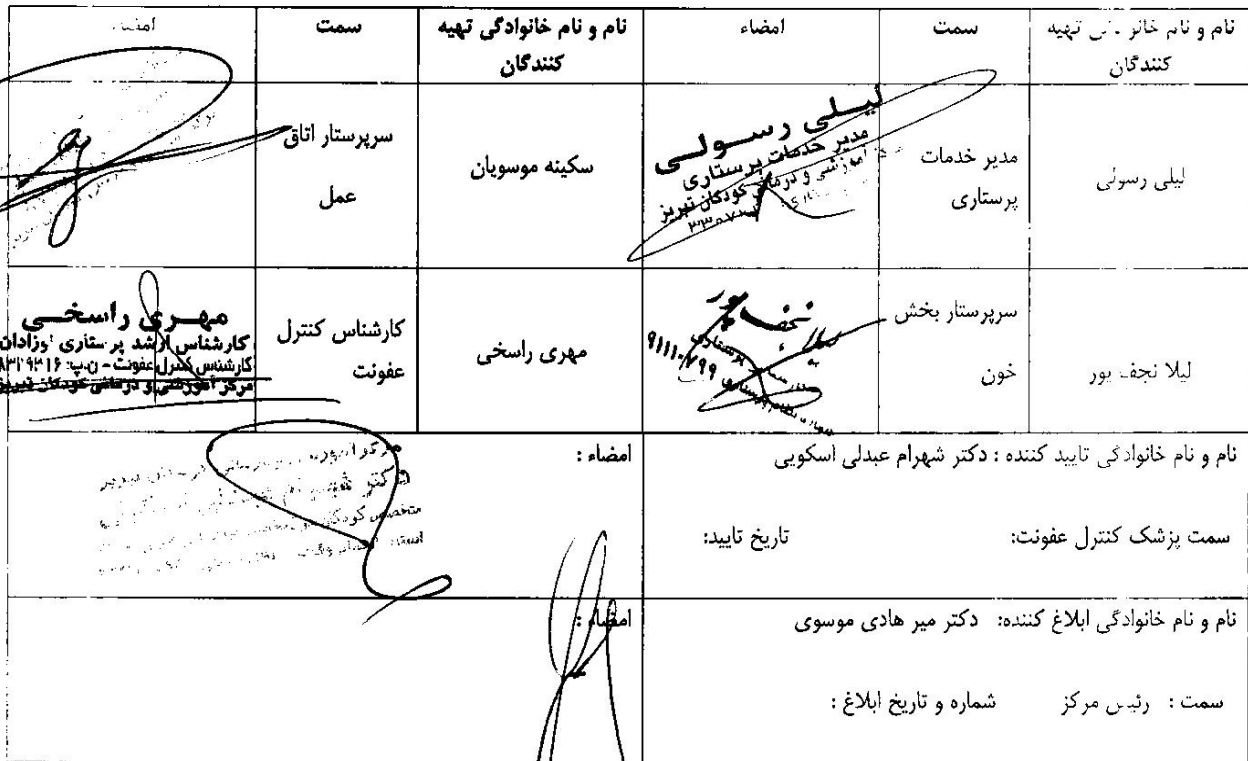 نام و نام خانوادگی تهیه کنندگان
سمت
امضاء
نام و نام خانوادگی تهیه کنندگان
سمت
امضاء
لیلی رسولی
مدیر خدمات
پرستاری
لیلی رسولی
مدیر خدمات پرستاری
مرکز آموزشی و درمانی کودکان تبریز
سکینه موسویان
سرپرستار اتاق
عمل
لیلا نجف پور
سرپرستار بخش
خون
لیلا نجف پور
مهری راسخی
کارشناس کنترل
عفونت
مهری راسخی
کارشناس ارشد پرستاری نوزادان
کارشناس کنترل عفونت - ن.پ:
مرکز آموزشی و درمانی کودکان تبریز
نام و نام خانوادگی تایید کننده : دکتر شهرام عبدلی اسکویی
امضاء :
سمت پزشک کنترل عفونت:
تاریخ تایید:
نام و نام خانوادگی ابلاغ کننده: دکتر میر هادی موسوی
امضاء :
سمت : رئیس مرکز
شماره و تاریخ ابلاغ :